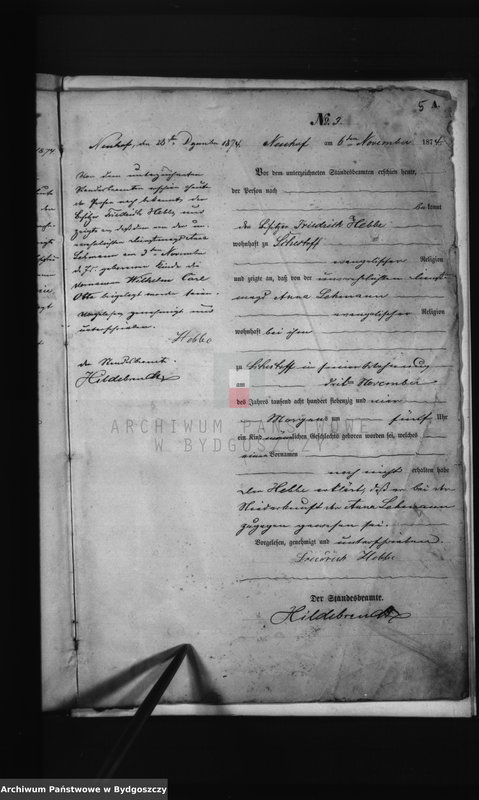 5
No. 3.
Neuhof, den 28ten Dezember 1874.
Vor dem unterzeichneten
Standesbeamten erschien heute
der Person nach bekannt, der
Besitzer Friedrich Hebbe und
zeigte an, daß dem von der un-
verehelichten Dienstmagd Anna
Lehmann am 3ten November
d. J. geborenen Kinde die
Vornamen Wilhelm Carl
Otto beigelegt worden seien.
Vorgelesen genehmigt und
unterschrieben.
Hebbe
Der Standesbeamte.
Hildebrandt
Neuhof am 6ten November 1874.
Vor dem unterzeichneten Standesbeamten erschien heute,
der Person nach
bekannt
den Besitzer Friedrich Hebbe
wohnhaft zu
evangelischer Religion
und zeigte an, daß von der unverehelichten Dienst-
magd Anna Lehmann
evangelischer Religion
wohnhaft bei ihm
zu in seiner Wohnung
am drit November
des Jahres tausend acht hundert siebenzig und vier
Morgens um fünf Uhr
ein Kind männlichen Geschlechts geboren worden sei, welches
einen Vornamen
noch nicht erhalten habe
Der Hebbe erklärt, daß er bei der
Niederkunft der Anna Lehmann
zugegen gewesen sei.
Vorgelesen, genehmigt und unterschrieben
Friedrich Hebbe
Der Standesbeamte.
Hildebrandt
ARCHIWUM PAŃSTWOWE
W BYDGOSZCZY
Archiwum Państwowe w Bydgoszczy